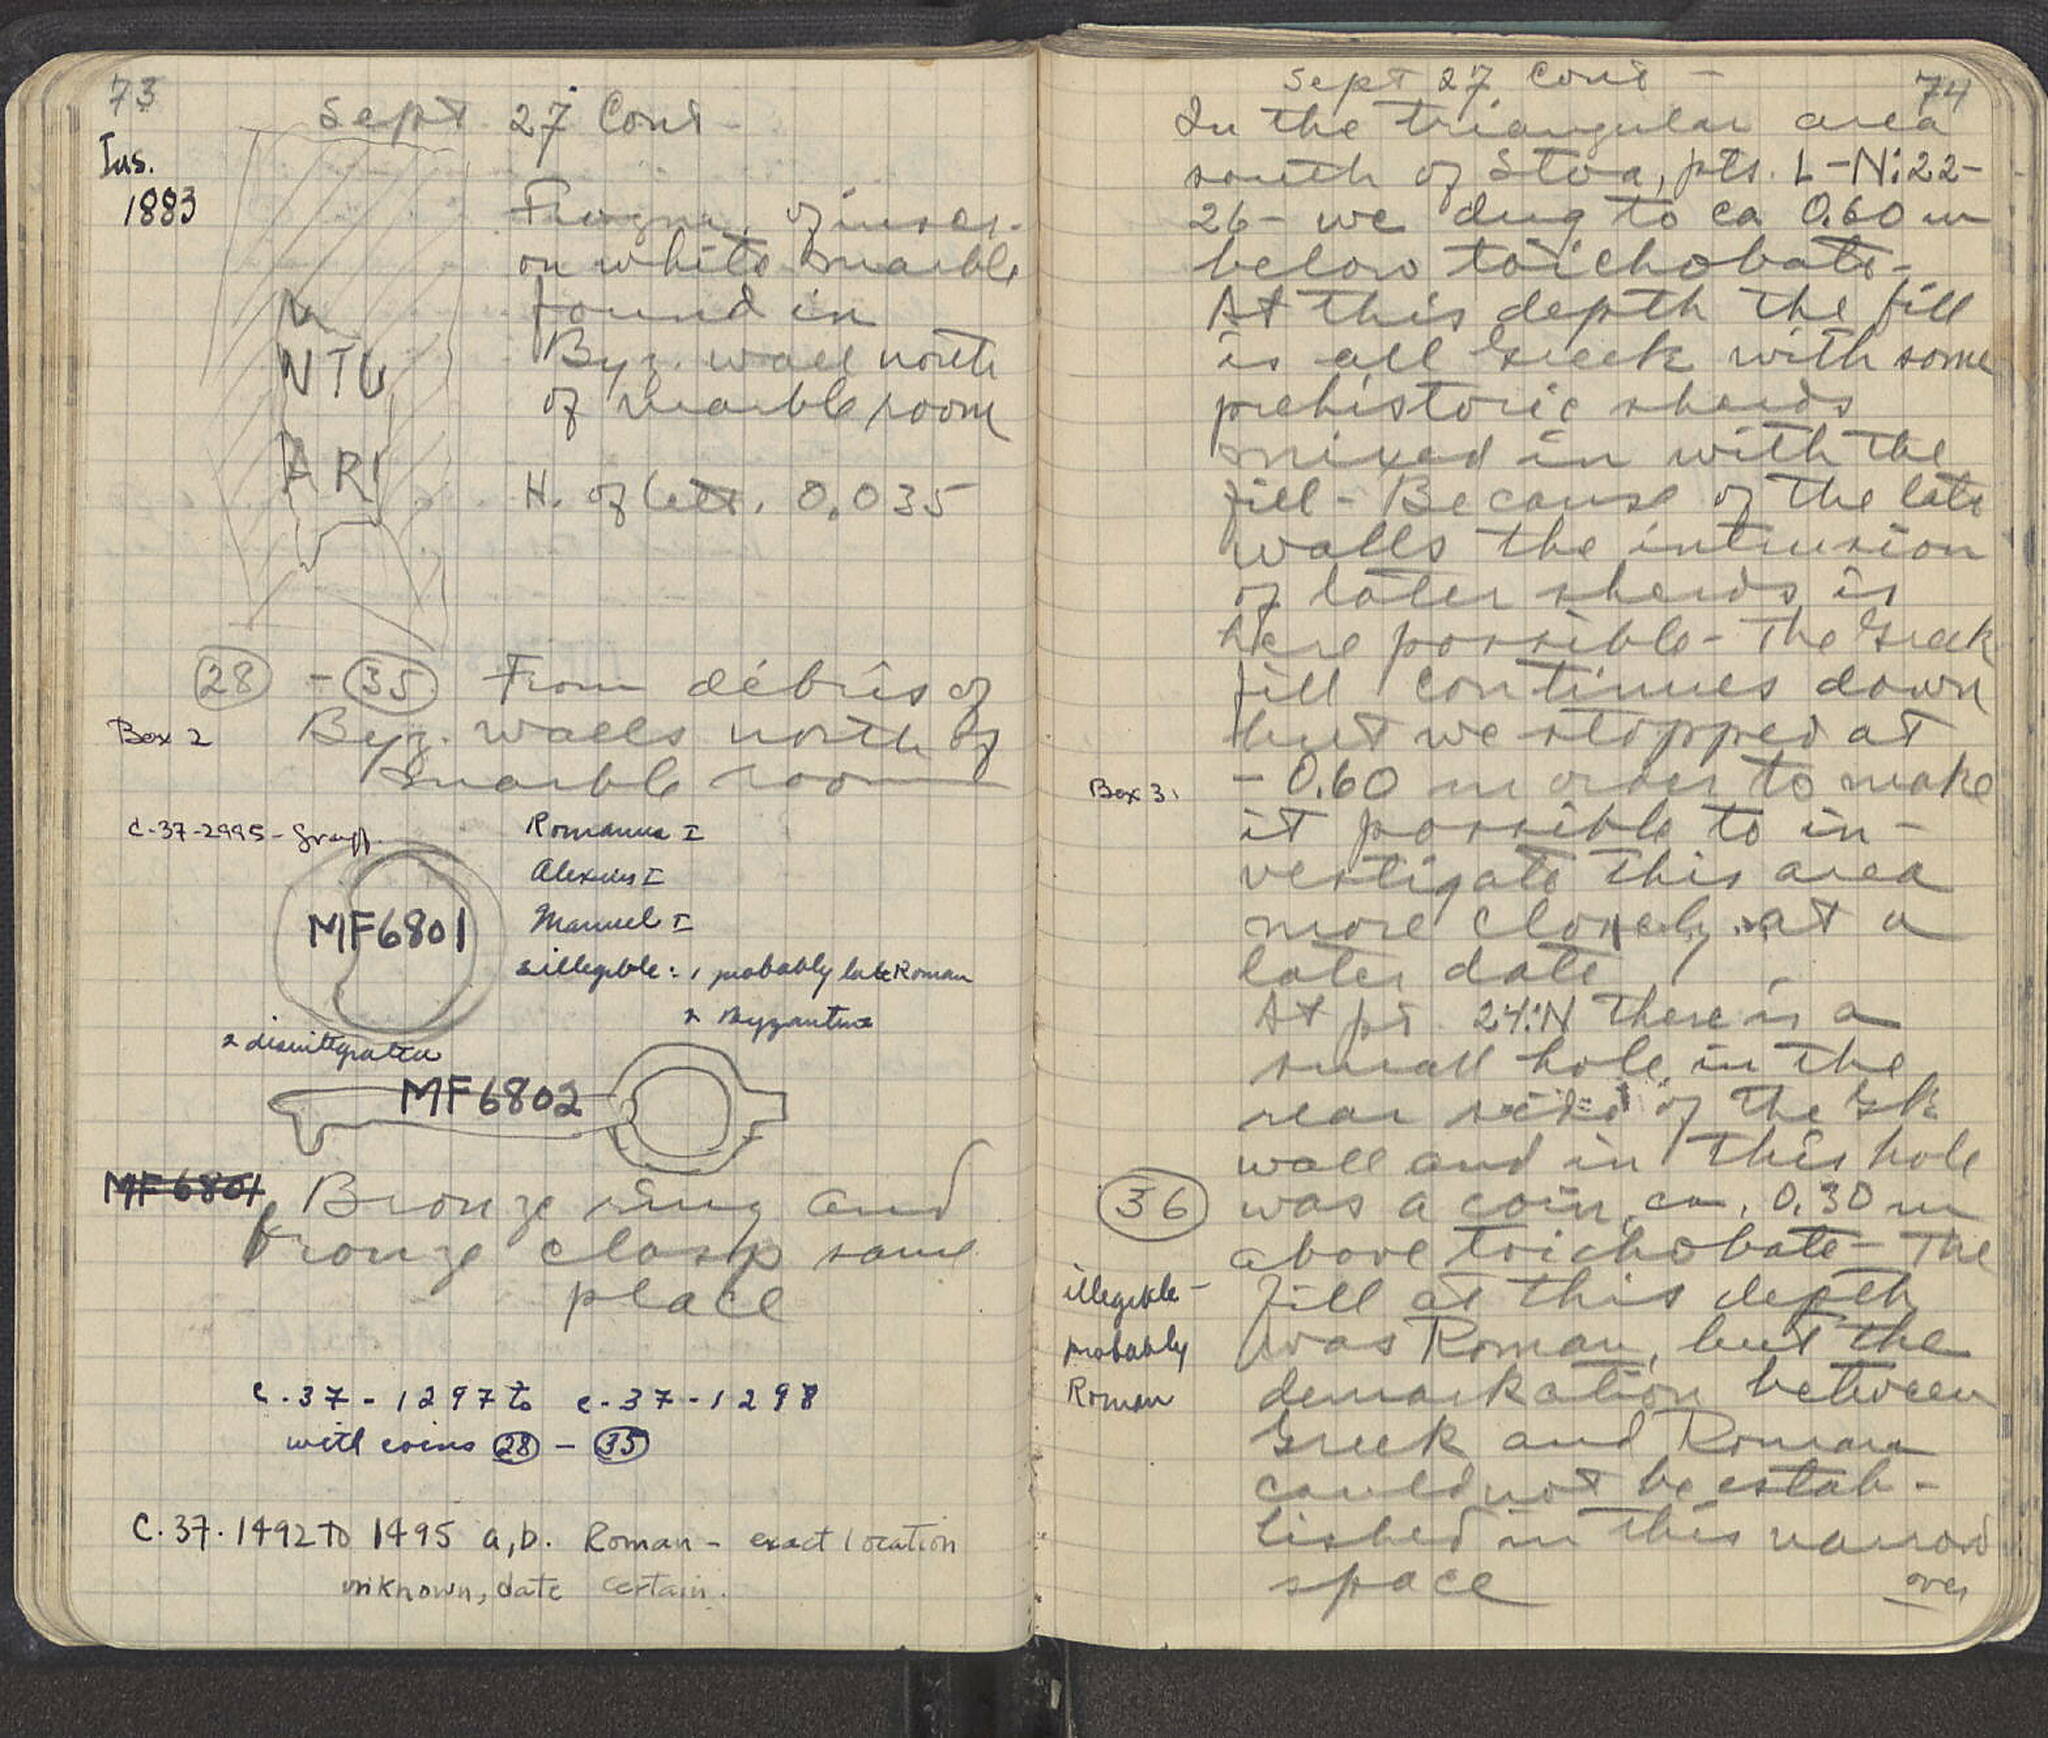 73
Sept 27 Cont -
Ins.
1883
Fragm. of inscr.
on white marble
found in
Byz. wall north
of marble room
N
NTU
ARI
H. of lett. 0.035
28 - 35 From débris of
Box 2
Byz. walls north of
marble room
C-37-2995 - Graff.
Romanus I
Alexius I
Manuel I
MF6801
3 illegible: 1 probably late Roman
2 Byzantine
2 disintegrated
MF6802
MF 6801
Bronze ring and
bronze clasp same
place
C-37-1297 to C-37-1298
with coins 28 - 35
C.37.1492 to 1495 a,b. Roman - exact location
unknown, date certain.
74
Sept 27 Cont -
In the triangular area
south of Stoa, pts. L-N:22-
26- we dug to ca 0.60 m
below toichobate-
At this depth the fill
is all Greek with some
prehistoric sherds
mixed in with the
fill - Because of the late
walls the intrusion
of later sherds is
here possible - The Greek
fill continues down
but we stopped at
Box 3
- 0.60 in order to make
it possible to in-
vestigate this area
more closely at a
later date
At pt 24:N there is a
small hole in the
rear side of the Gk
wall and in this hole
36 was a coin, ca. 0.30 m
above toichobate - The
illegible -
probably
Roman
fill at this depth
was Roman, but the
demarkation between
Greek and Roman
could not be estab-
lished in this narrow
space
over